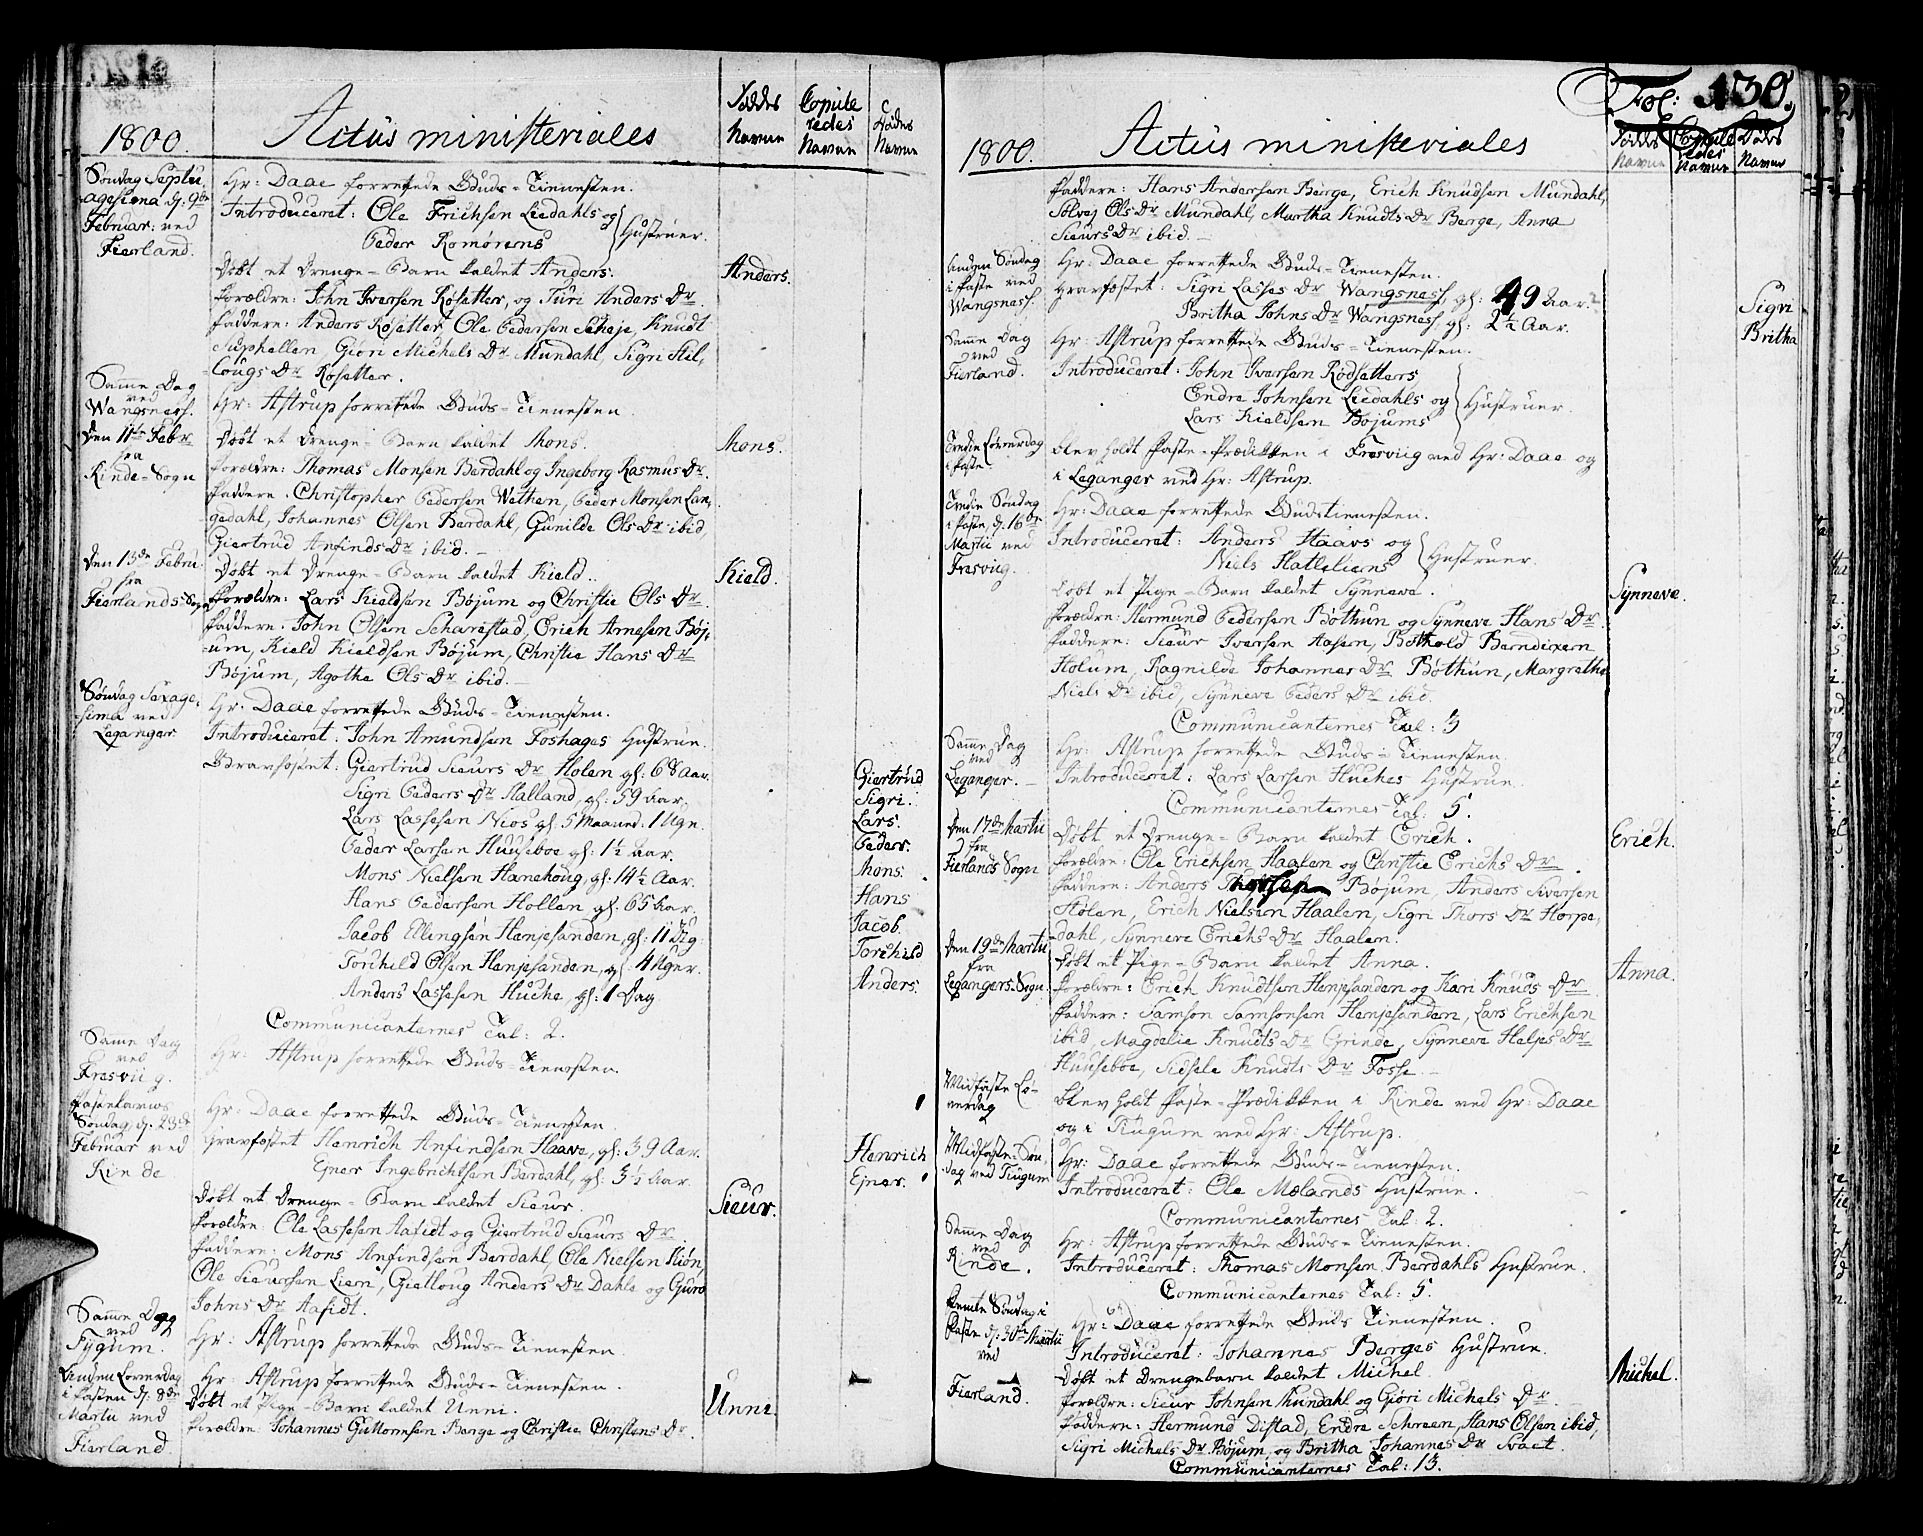 1800.
Actus ministeriales
Fødde Navne
Copuleredes Navne
Dødes Navne
Søndag Septuagesima d: 9de Februar: ved Fierland.
Hr: Daae forrettede Guds-Tienesten.
Introduceret: Ole Erichsen Liedahls og
Peder Romørens Hustruer.
Døbt et Drenge-Barn kaldet Anders.
Anders.
Forældre: John Iversen Røsetter, og Turi Anders Dr.
Faddere: Anders Røsetter, Ole Pedersen Skeje, Knudt
Suphellen, Giøri Michels Dr Mundahl, Sigri Stel-
Lougs Dr Røsetter.
Samme Dag ved Wangsness.
Hr: Astrup forrettede Guds-Tienesten.
Den 11te Febr fra Rinde-Sogn
Døbt et Drenge-Barn kaldet Mons.
Mons.
Forældre: Thomas Monsen Berdahl og Ingeborg Rasmus Dr.
Faddere: Christopher Pedersen Wethen, Peder Monsen Lan-
gedahl, Johannes Olsen Berdahl, Gunilde Ols Dr ibid,
Giertrud Anfinds Dr ibid.
Den 13de Febru. fra Fierlands Sogn
Døbt et Drenge-Barn kaldet Kield.
Kield.
Forældre: Lars Kieldsen Bøjum og Christie Ols Dr.
Faddere: John Olsen Scharestad, Erich Arnesen Bøj-
um, Kield Kieldsen Bøjum, Christie Hans Dr
Bøjum, Agothe Ols Dr ibid.
Søndag Sexagesima ved Leganger
Hr: Daae forrettede Guds-Tienesten.
Introduceret: John Amundsen Foshages Hustrue.
Gravfæstet: Giertrud Sieurs Dr Holen gl: 68 Aar.
Giertrud
Sigri Peders Dr Halland, gl: 59 Aar,
Sigri.
Lars Lassesen Nios gl: 5 Maaned: 1 Uge.
Lars.
Peder Larsen Huuseboe gl: 1½ Aar.
Peder.
Mons Nielsen Hanehoug, gl: 14½ Aar.
Mons.
Hans Pedersen Hollen gl: 65 Aar,
Hans
Jacob Ellingsen Henjesanden, gl: 11 Dag.
Jacob.
Torchild Olsen Henjesanden, gl: 4 Uger.
Torchild
Anders Lassesen Huche, gl: 1 Dag
Anders.
Communicanternes Tal: 2.
Samme Dag ved Fresviig.
Hr: Astrup forrettede Guds-Tienesten.
Fastelavns Søndag, d. 23de Februar ved Rinde
Hr: Daae forrettede Guds-Tienesten.
Gravfæstet Henrich Anfindsen Haave, gl: 39 Aar.
Henrich
Ejner Ingebrichtsen Berdahl, gl: 3½ Aar.
Ejner.
Døbt et Drenge-Barn kaldet Sieur.
Sieur.
Forældre: Ole Lassesen Aafidt og Giertrud Sieurs Dr.
Faddere: Mons Anfindsen Berdahl, Ole Nielsen Kiøn,
Ole Sieursen Lien, Giettoug Anders Dr Dahle og Guro
Johns Dr Aafidt.
Samme Dag ved Tygum.
Hr: Astrup forrettede Guds-Tienesten.
Anden Løverdag i Fasten d: 8de Martii ved Fierland
Hr: Astrup forrettede Guds-Tienesten.
Døbt et Pige-Barn kaldet Unni.
Unni.
Forældre: Johannes Guttormsen Berge og Christie Christens Dr.
Fol: 130.
1800.
Actus ministeriales
Fødde Navne
Copuleredes Navne
Dødes Navne
Faddere: Hans Andersen Berge, Erich Knudsen Mundahl,
Sølvej Ols Dr Mundahl, Martha Knudts Dr Berge, Anna
Sieurs Dr ibid.
Anden Søndag i Faste ved Wangsness.
Hr: Daae forrettede Guds-Tienesten.
Gravfæstet: Sigri Lasses Dr Wangsness, gl: 49 Aar.
Sigri
Britha Johns Dr Wangsness: gl: 2½ Aar.
Britha
Samme Dag ved Fierland.
Hr: Astrup forrettede Guds-Tienesten.
Introduceret: John Iversen Rødsetters
Endre Johnsen Liedahls og
Lars Kieldsen Bøjums Hustruer.
Tredie Løverdag i Faste
Blev holdt Faste-Prædikken i Fresviig ved Hr: Daae og
i Leganger ved Hr: Astrup.
Tredie Søndag i Faste, d. 16de Martii ved Fresviig.
Hr: Daae forrettede Gudstienesten.
Introduceret: Anders Haavs og
Niels Hatleliens Hustruer.
Døbt et Pige-Barn kaldet Synneve.
Synneve.
Forældre: Hermund Pedersen Bøthun og Synneve Hans Dr
Faddere: Sieur Iversen Aasen, Bothold Berndixen
Holum, Ragnilde Johannes Dr Bøthun, Margrethe
Niels Dr ibid, Synneve Peders Dr ibid.
Communicanternes Tal: 3
Samme Dag ved Leganger.
Hr: Astrup forrettede Guds-Tienesten.
Introduceret: Lars Larsen Huches Hustrue.
Communicanternes Tal: 5.
Den 17de Martii fra Fierlands Sogn
Døbt et Drenge-Barn kaldet Erich.
Erich.
Forældre: Ole Erichsen Haalen og Christie Erichs Dr.
Faddere: Anders Bøjum, Anders Iversen
Stølen, Erich Nielsen Haalen, Sigri Thors Dr Horpe-
dahl, Synneve Erichs Dr Haalen.
Den 19de Martii fra Legangers-Sogn.
Døbt et Pige-Barn kaldet Anna.
Anna.
Forældre: Erich Knudtsen Henjesanden og Kari Knuds Dr
Faddere: Samson Samsonsen Henjesanden, Lars Erichsen
ibid, Magdelie Knudts Dr Grinde, Synneve Helges Dr
Huuseboe, Sidsele Knudts Dr Fosse.
Midfaste Løverdag
Blev holdt Faste-Prædikken i Rinde ved Hr: Daae
og i Tiugum ved Hr: Astrup.
Midfaste-Søndag ved Tiugum
Hr: Daae forrettede Guds-Tienesten.
Introduceret: Ole Mælands Hustrue.
Communicanternes Tal: 2.
Samme Dag ved Rinde.
Hr: Astrup forrettede Guds-Tienesten.
Introduceret: Thomas Monsen Berdahls Hustrue.
Communicanternes Tal: 5.
Femte Søndag i Faste d: 30te Martii ved Fierland.
Hr: Daae forrettede Guds Tienesten.
Introduceret: Johannes Berges Hustrue.
Døbt et Drengebarn kaldet Michel.
Michel.
Forældre: Sieur Johnsen Mundahl og Giøri Michels Dr.
Faddere: Hermund Distad, Endre Schreen, Hans Olsen ibid,
Sigri Michels Dr Bøjum, og Britha Johannes Dr Svaet.
Communicanternes Tal: 13.